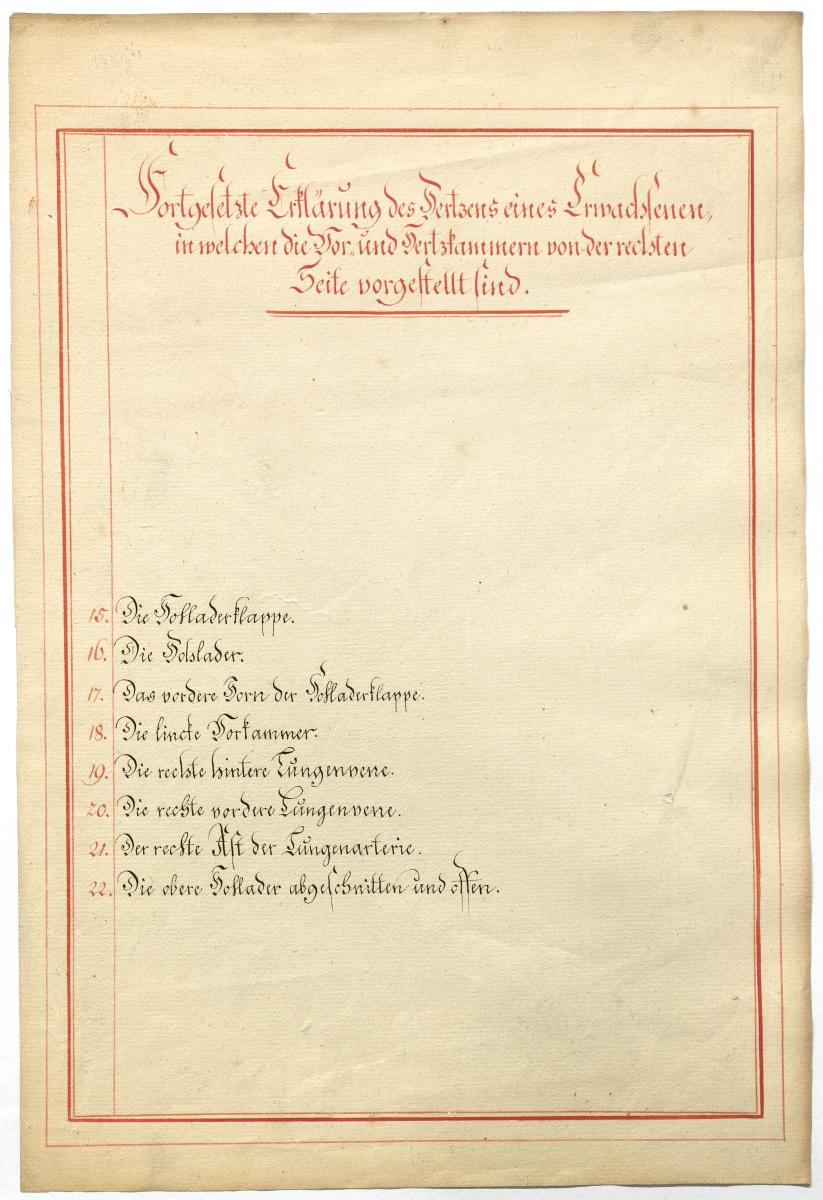 Fortgesetzte Erklärung des Hertzens eines Erwachsenen,
in welchen die Vor- und Hertzkammern von der rechten
Seite vorgestellt sind.
15. Die Hohladerklappe.
16. Die Hohlader.
17. Das vordere Horn der Hohladerklappe.
18. Die lincke Vorkammer.
19. Die rechte hintere Lungenvene.
20. Die rechte vordere Lungenvene.
21. Der rechte Ast der Lungenarterie.
22. Die obere Hohlader abgeschnitten und offen.